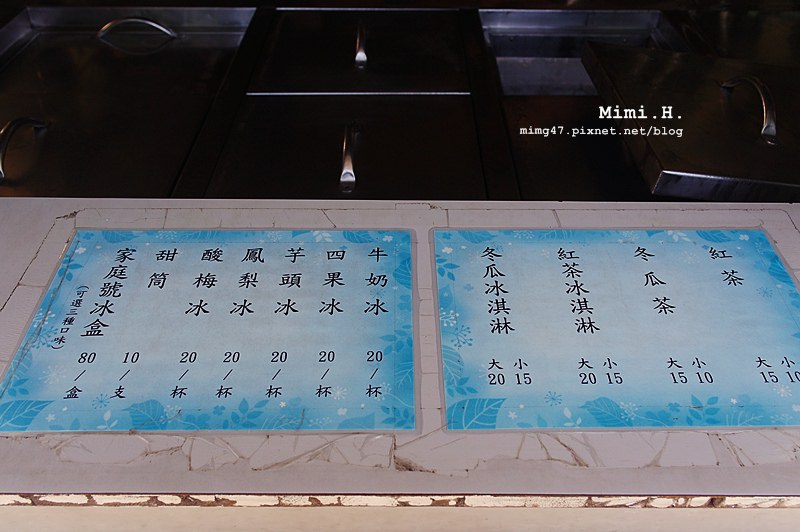 Mimi.H.
mimg47.pixnet.net/blog
牛奶冰 20/杯
四果冰 20/杯
芋頭冰 20/杯
鳳梨冰 20/杯
酸梅冰 20/杯
甜筒 10/支
家庭號冰盒 80/盒
(可選三種口味)
紅茶 大15 小10
冬瓜茶 大15 小10
紅茶冰淇淋 大20 小15
冬瓜冰淇淋 大20 小15